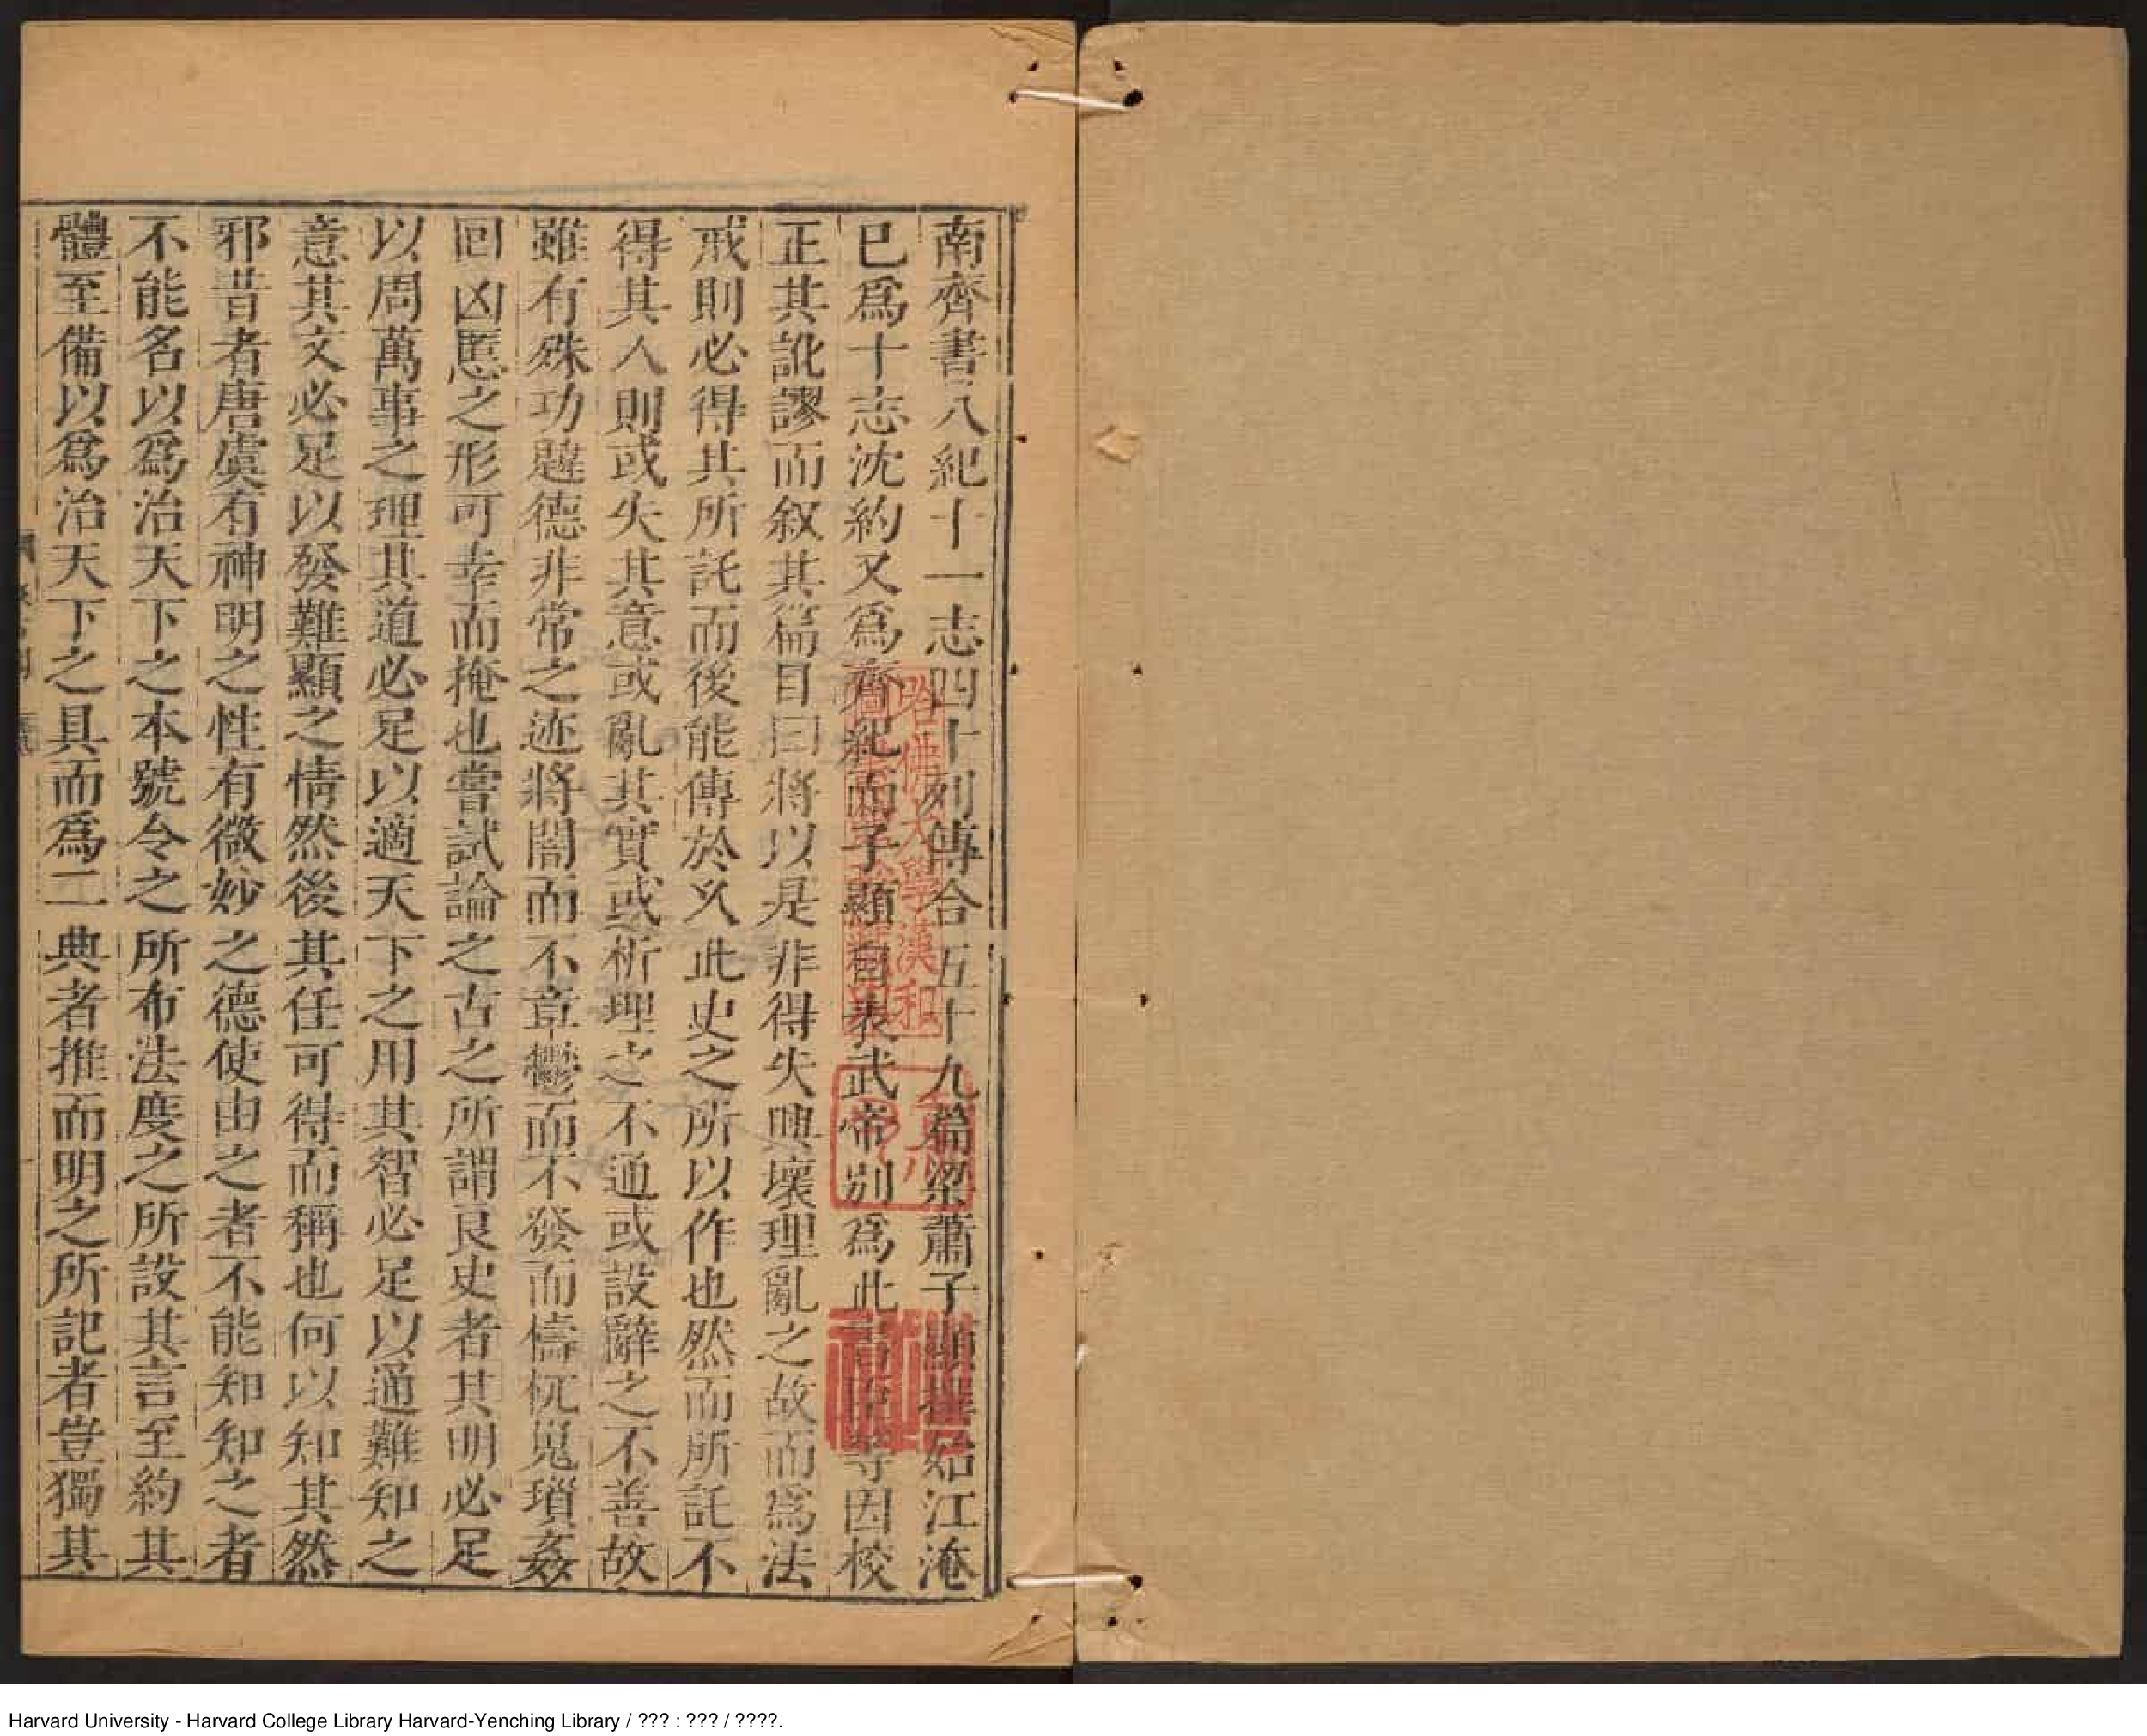 南齊書八紀十一志四十列傳合五十九篇梁蕭子顯撰始江淹
已爲十志沈約又爲齊紀而子顯自表武帝別爲此書臣等因校
正其訛謬而叙其篇目曰將以是非得失興壞理亂之故而爲法
戒則必得其所託而後能傳於乆此史之所以作也然而所託不
得其人則或失其意或亂其實或析理之不通或設辭之不善故
雖有殊功韙德非常之迹將闇而不章鬱而不發而檮杌嵬瑣姦
回凶慝之形可幸而掩也嘗試論之古之所謂良史者其明必足
以周萬事之理其道必足以適天下之用其智必足以通難知之
意其文必足以發難顯之情然後其任可得而稱也何以知其然
邪昔者唐虞有神明之性有微妙之德使由之者不能知知之者
不能名以爲治天下之本號令之所布法度之所設其言至約其
體至備以爲治天下之具而爲二典者推而明之所記者豈獨其
哈佛大學漢和
圖書館珍藏印
Harvard University - Harvard College Library Harvard-Yenching Library / ??? : ??? / ????.